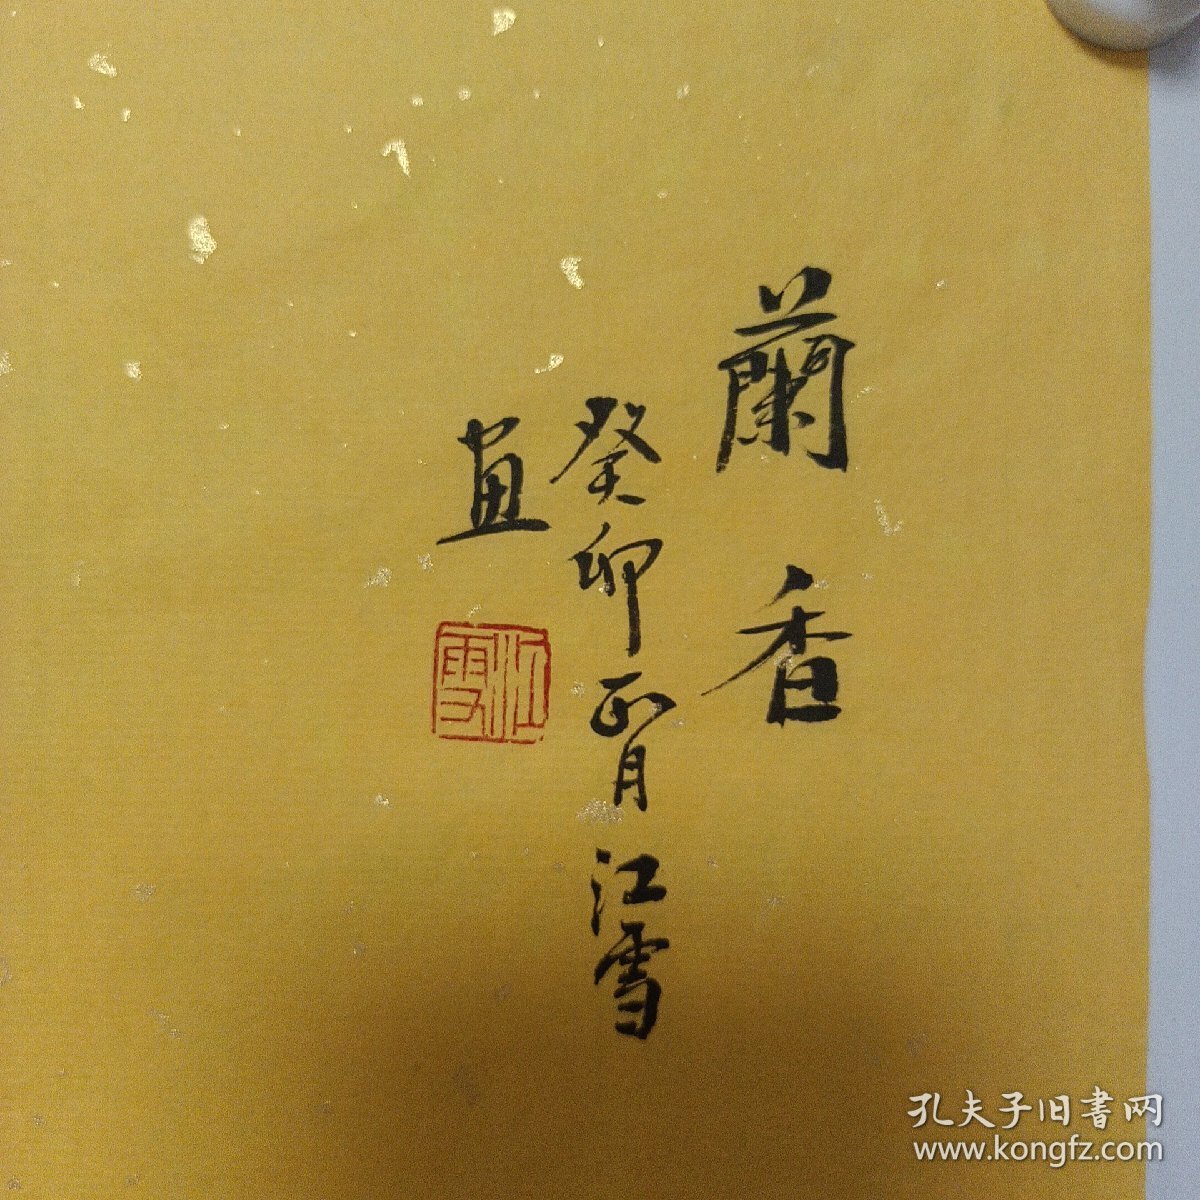 蘭香
癸卯正月江雪
画
江雪
孔夫子旧書网
www.kongfz.com